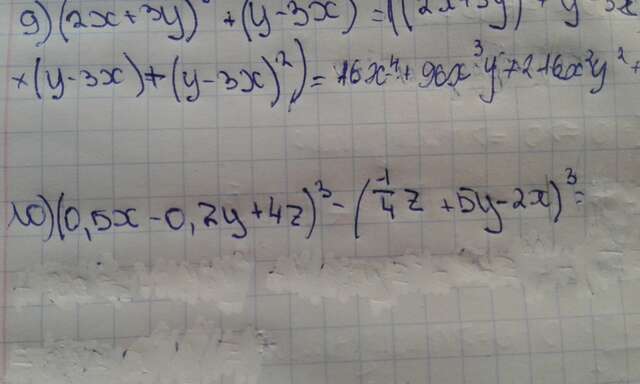 9) (2x+3y) + (y-3x) =
×(y-3x)+(y-3x)²) = 16x⁴+96x³y+216x²y²+
10) (0,5x-0,2y+4z)³-(¼z+5y-2x)³=